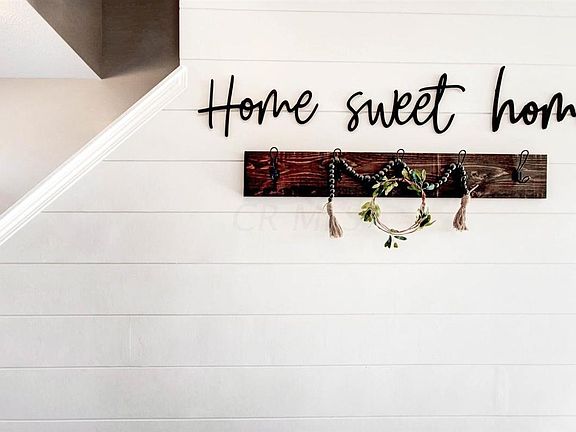 Home sweet hom